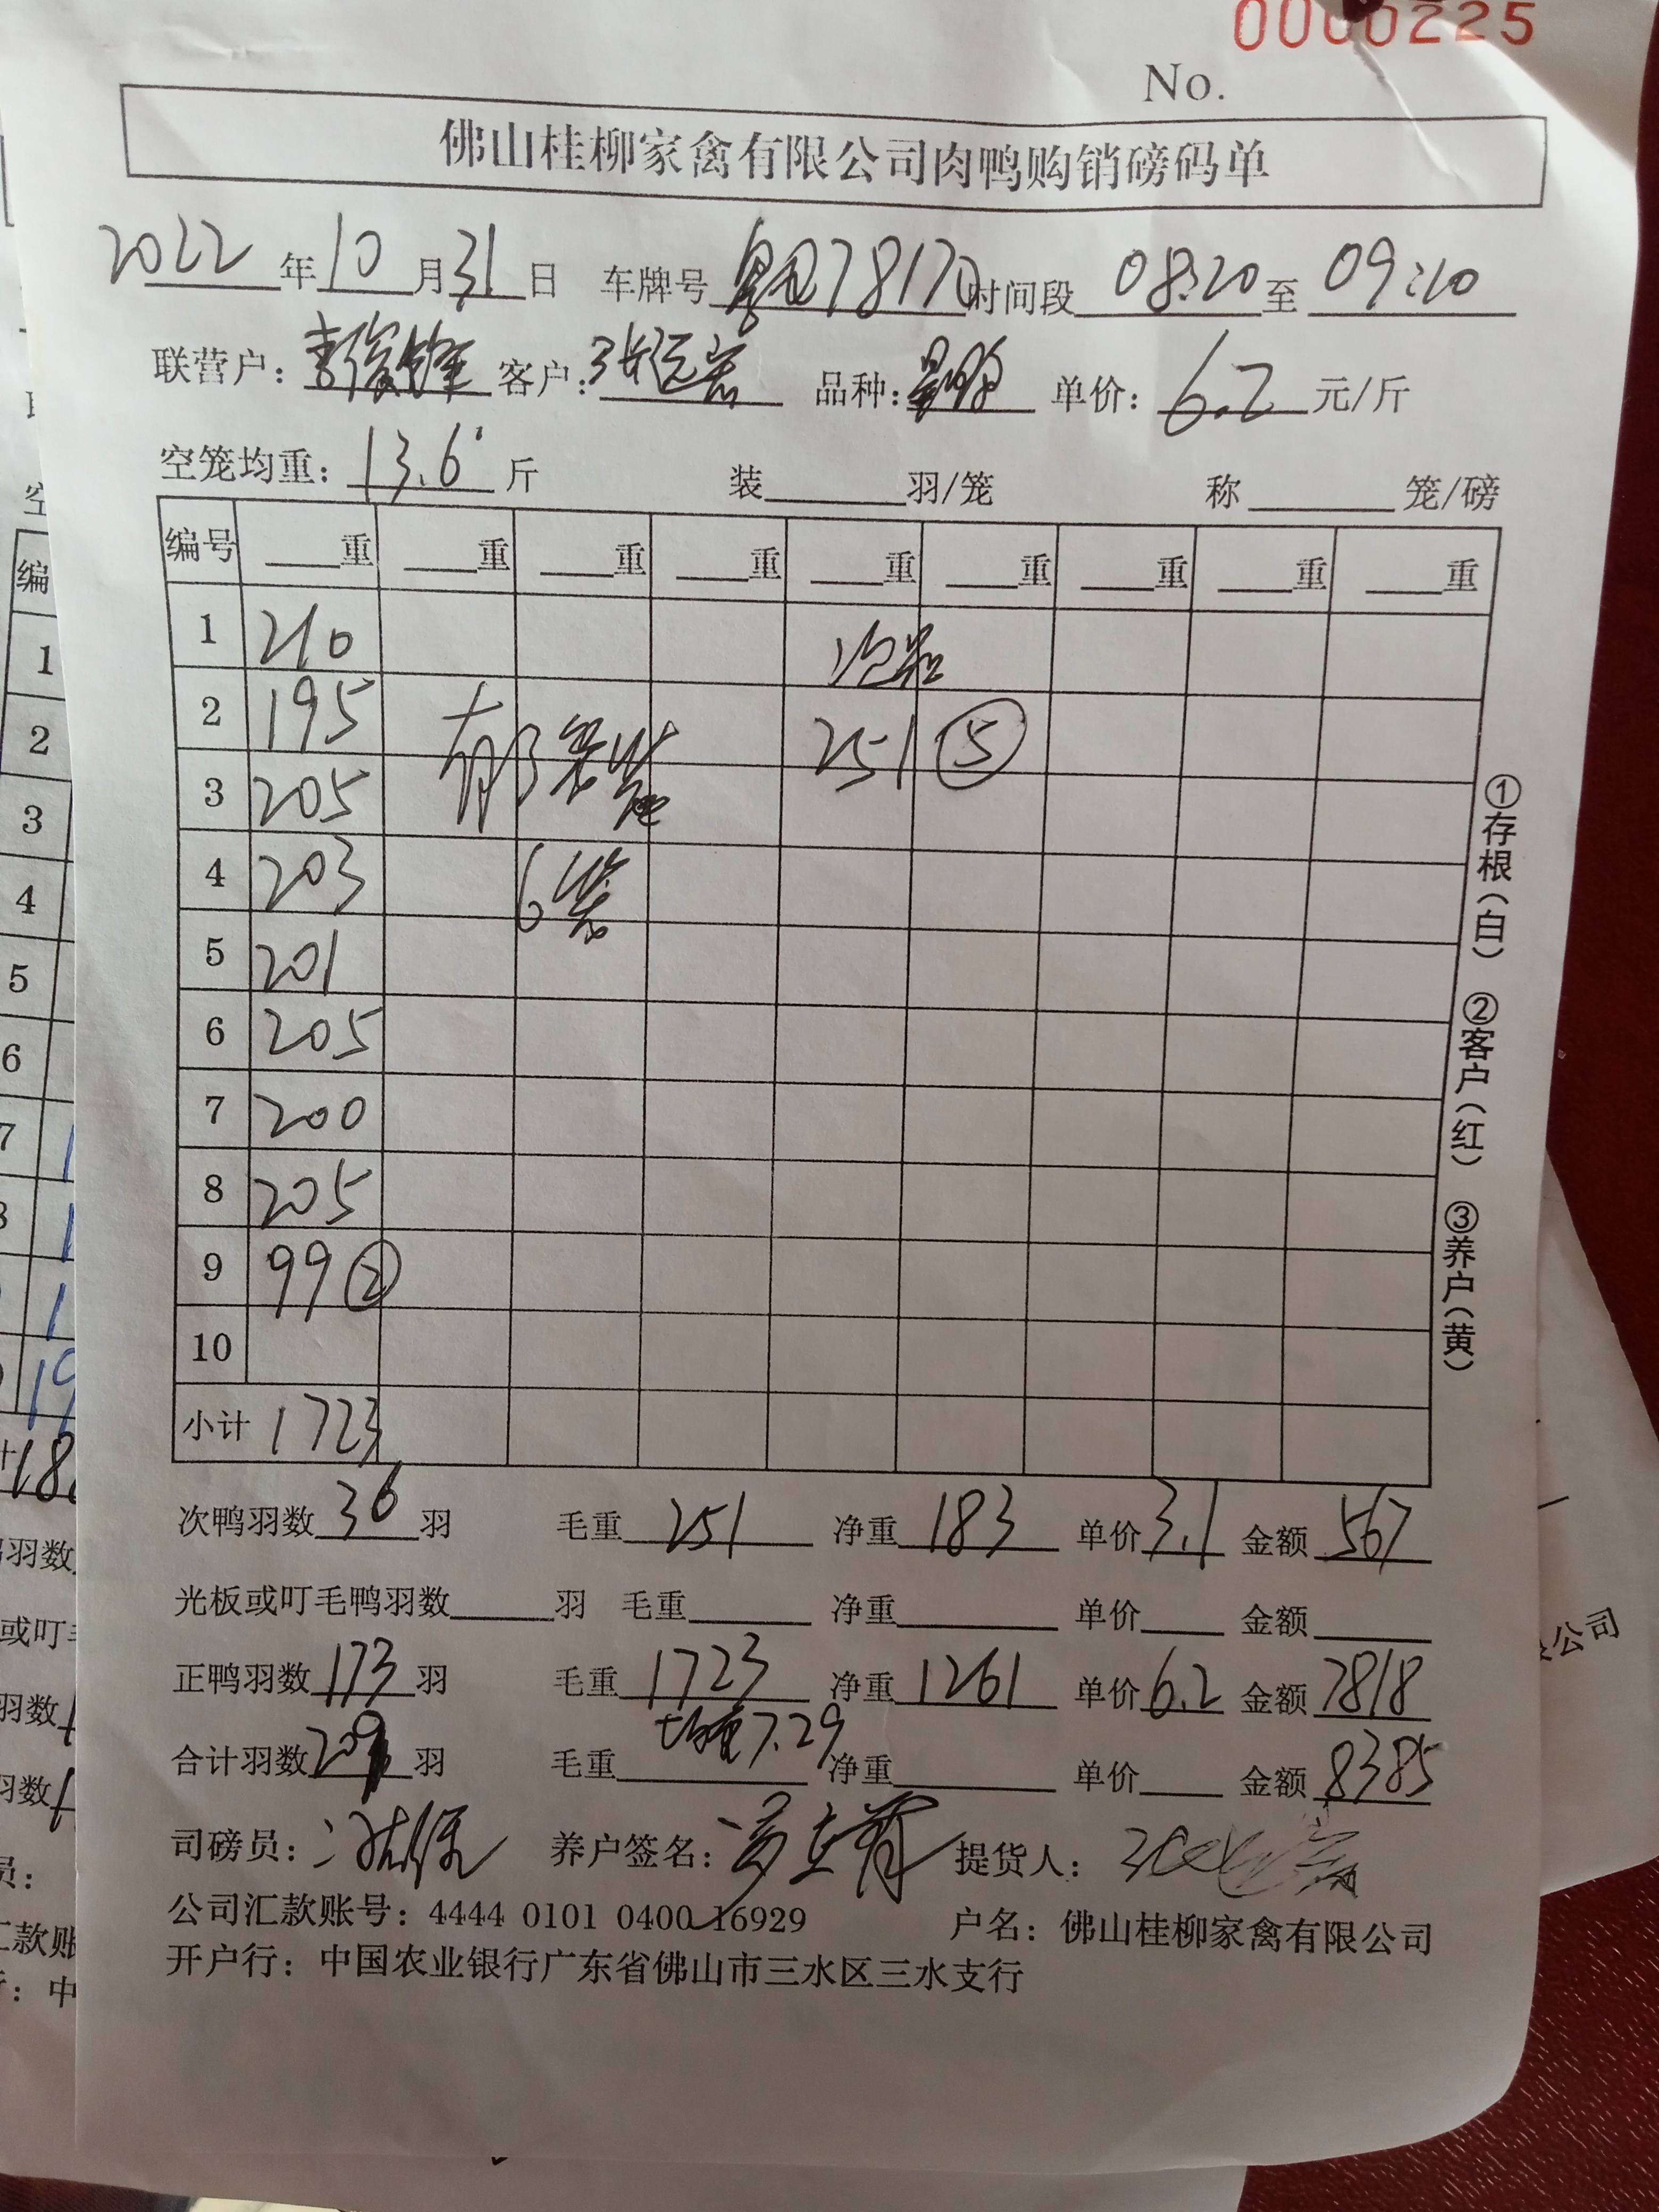 0000225
No.
佛山桂柳家禽有限公司肉鸭购销磅码单
2022年10月31日 车牌号 78170 时间段 08:20至09:10
联营户: 李俊锋 客户: 张远 品种: 单价: 6.2 元/斤
空笼均重: 13.6 斤 装____羽/笼 称____笼/磅
编号 __重 __重 __重 __重 __重 __重 __重 __重 __重
1 210
2 195 251 ⑤
3 205
4 203 6笼
5 201
6 205
7 200
8 205
9 99 ②
10
小计 1723
次鸭羽数 36 羽 毛重 251 净重 183 单价 3.1 金额 567
光板或叮毛鸭羽数____羽 毛重____ 净重____ 单价____ 金额____
正鸭羽数 173 羽 毛重 1723 净重 1261 单价 6.2 金额 7818
均重7.29
合计羽数 209 羽 毛重____ 净重____ 单价____ 金额 8385
司磅员: 养户签名: 提货人:
公司汇款账号: 4444 0101 0400 16929 户名: 佛山桂柳家禽有限公司
开户行: 中国农业银行广东省佛山市三水区三水支行
①存根(白) ②客户(红) ③养户(黄)